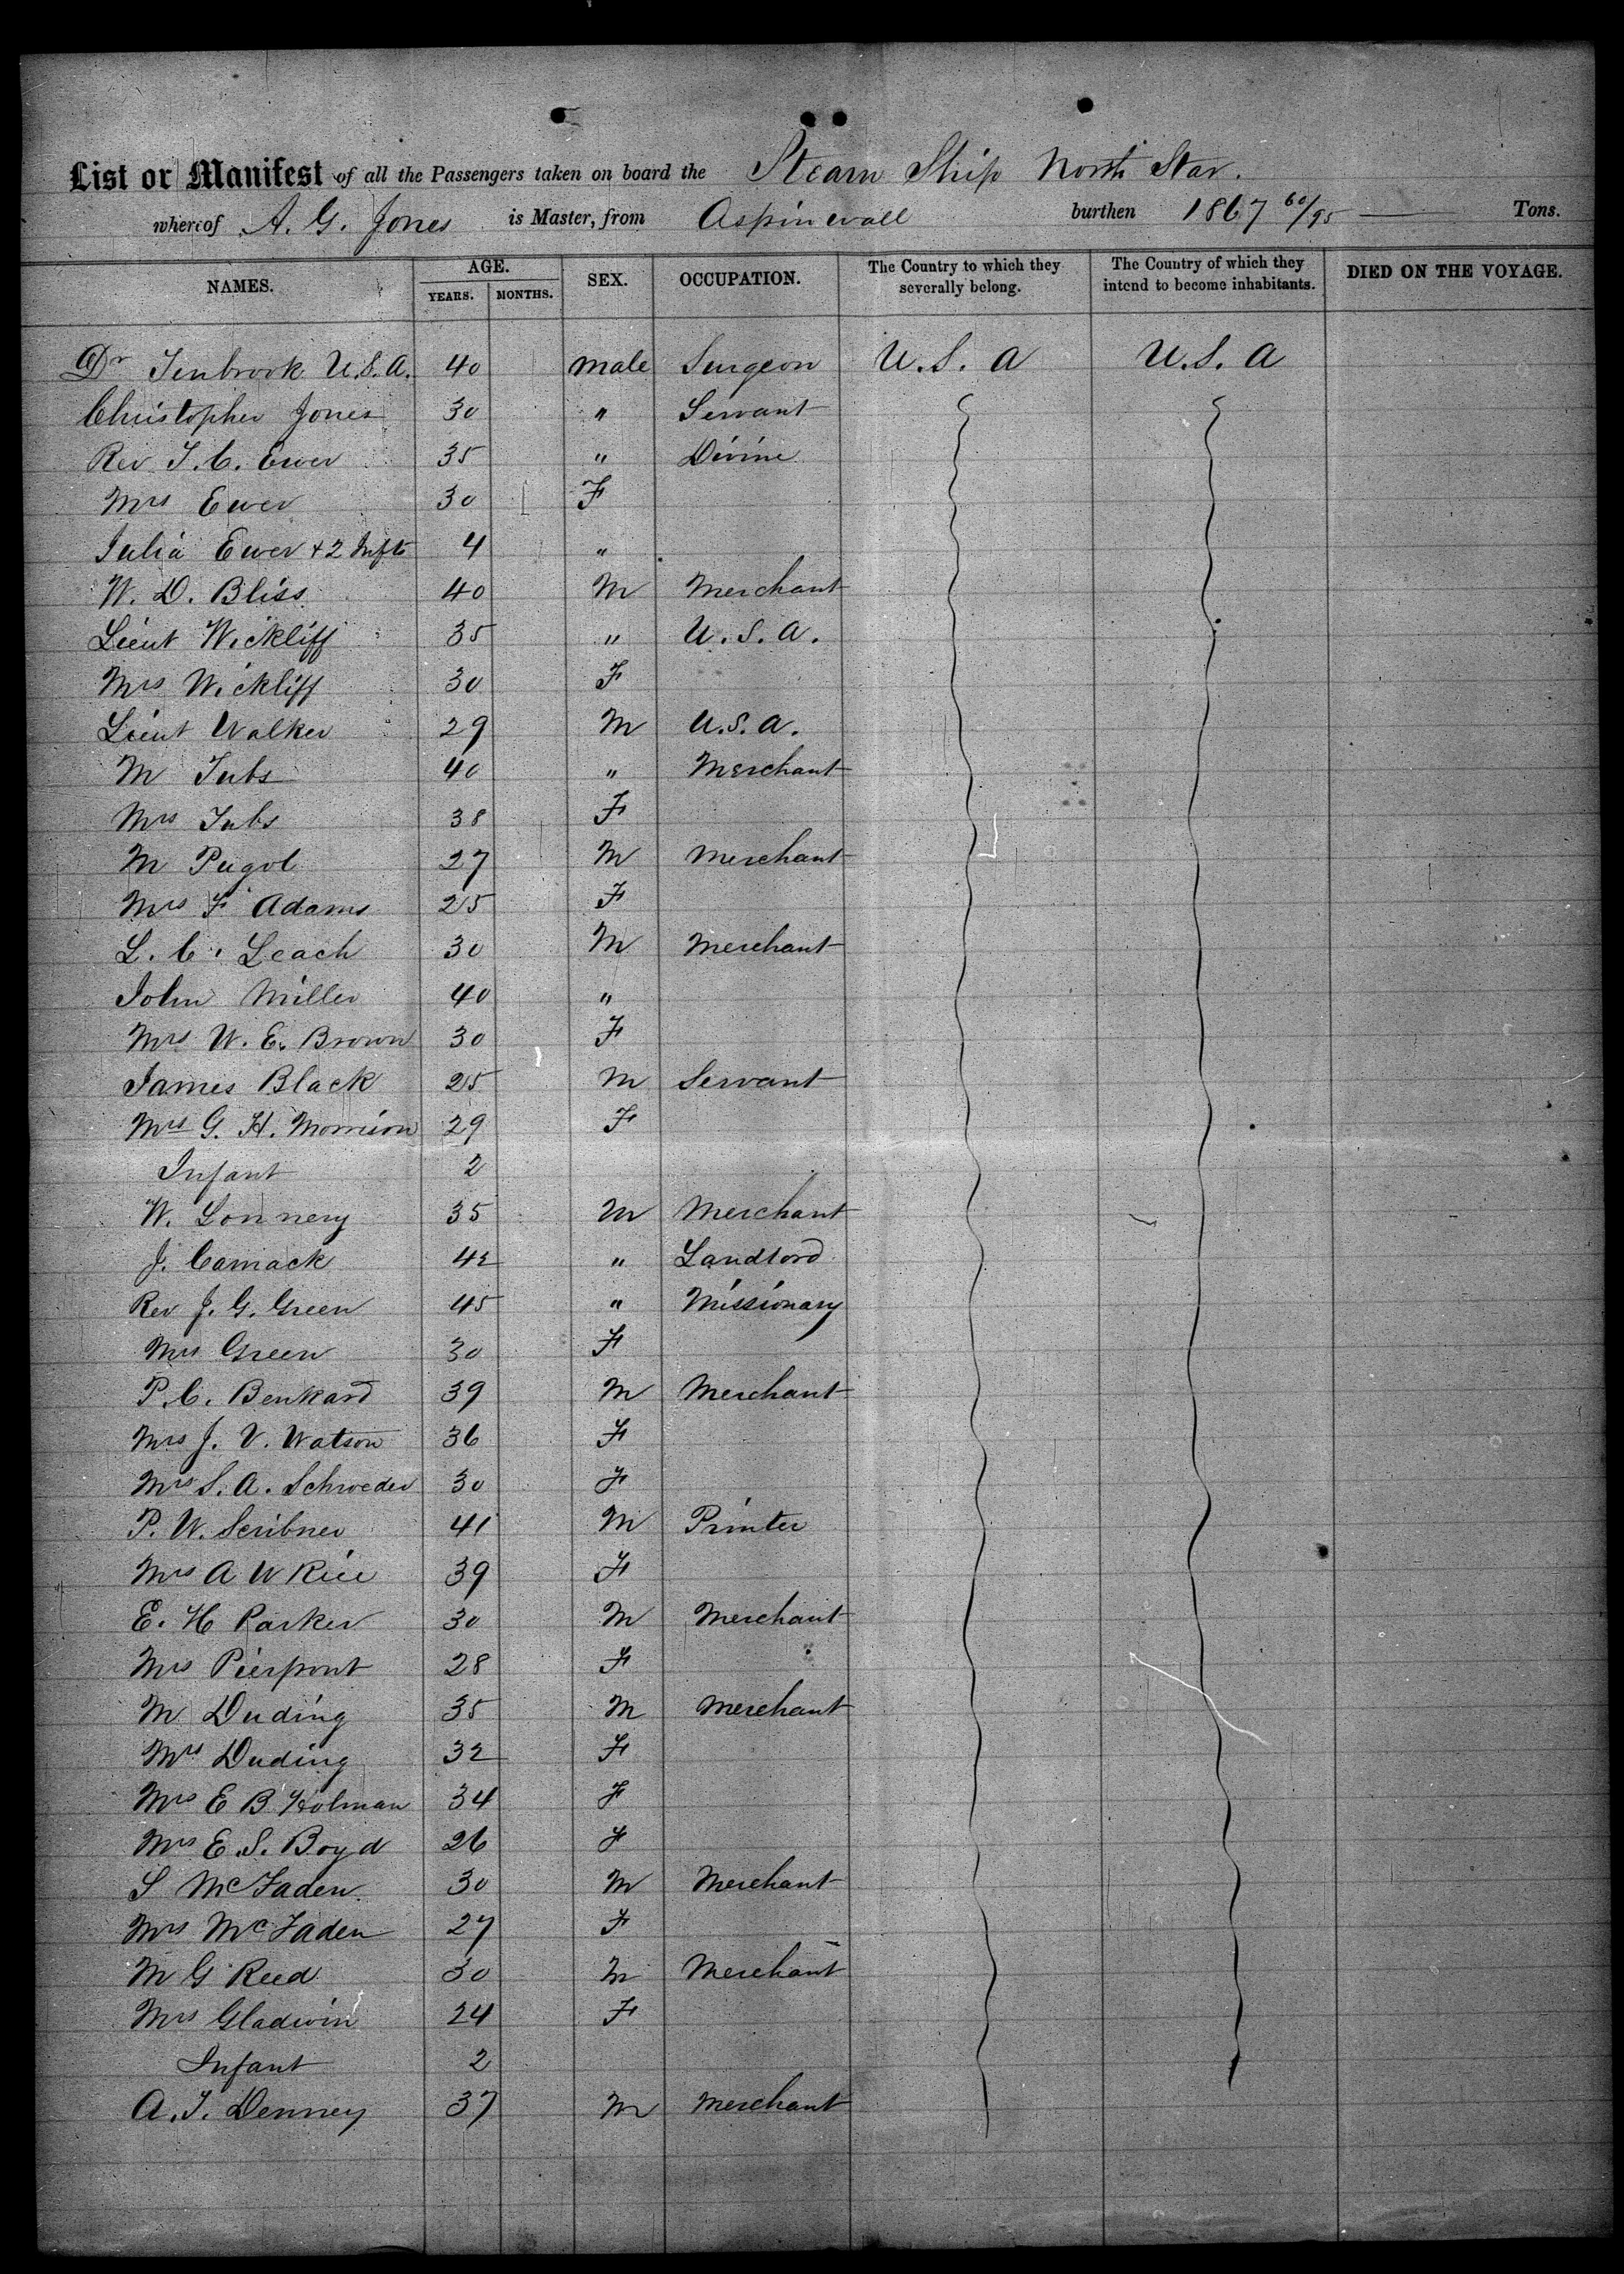 List or Manifest of all the Passengers taken on board the Steam Ship North Star.
whereof A. G. Jones is Master, from Aspinwall burthen 1867 60/95 Tons.
NAMES. AGE. YEARS. MONTHS. SEX. OCCUPATION. The Country to which they severally belong. The Country of which they intend to become inhabitants. DIED ON THE VOYAGE.
Dr Tenbrook U.S.A. 40 male Surgeon U.S.A U.S.A
Christopher Jones 30 " Servant
Rev F. C. Ewer 35 " Divine
Mrs Ewer 30 F
Julia Ewer + 2 Infts 4 "
W. D. Bliss 40 M Merchant
Lieut Wickliff 35 " U.S.A.
Mrs Wickliff 30 F
Lieut Walker 29 M U.S.A.
M Tubs 40 " Merchant
Mrs Tubs 38 F
M 27 M Merchant
Mrs F Adams 25 F
L. C. Leach 30 M Merchant
John Miller 40 "
Mrs W. E. Brown 30 F
James Black 25 M Servant
Mrs G. H. Morrison 29 F
Infant 2
W. Lonnery 35 M Merchant
J. Camack 42 " Landlord
Rev J. G. Green 45 " Missionary
Mrs Green 30 F
P. C. Benkard 39 M Merchant
Mrs J. V. Watson 36 F
Mrs S. A. Schroeder 30 F
P. W. Scribner 41 M Printer
Mrs A W Rice 39 F
E. H Parker 30 M Merchant
Mrs Pierpont 28 F
M Duding 35 M Merchant
Mrs Duding 32 F
Mrs E B Holman 34 F
Mrs E. S. Boyd 26 F
S McFaden 30 M Merchant
Mrs McFaden 27 F
M G Reed 30 M Merchant
Mrs Gladwin 24 F
Infant 2
A. T. Denney 37 M Merchant